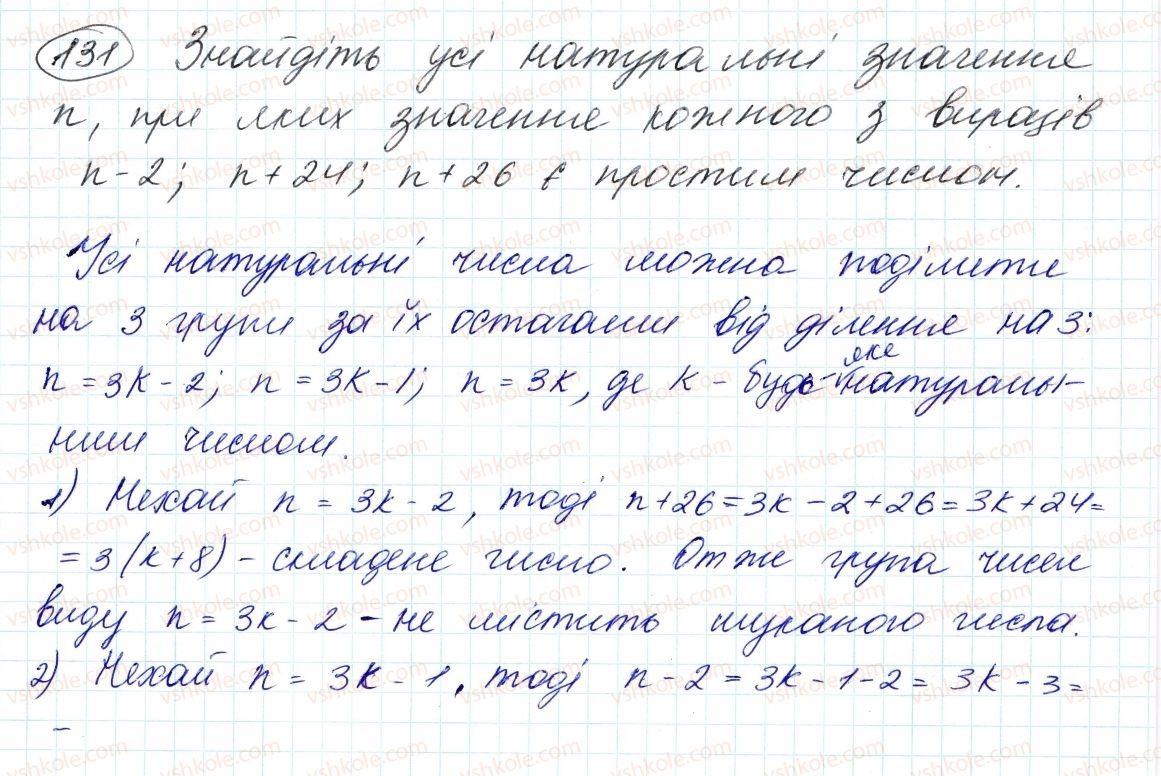 131 Знайдіть усі натуральні значення
n, при яких значення кожного з виразів
n - 2; n + 24; n + 26 є простим числом.
Усі натуральні числа можна поділити
на 3 групи за їх остачами від ділення на 3:
n = 3k - 2; n = 3k - 1; n = 3k, де k - будь-яке натураль-
ним числом.
1) Нехай n = 3k - 2, тоді n + 26 = 3k - 2 + 26 = 3k + 24 =
= 3(k + 8) - складене число. Отже група чисел
виду n = 3k - 2 - не містить шуканого числа.
2) Нехай n = 3k - 1, тоді n - 2 = 3k - 1 - 2 = 3k - 3 =
-